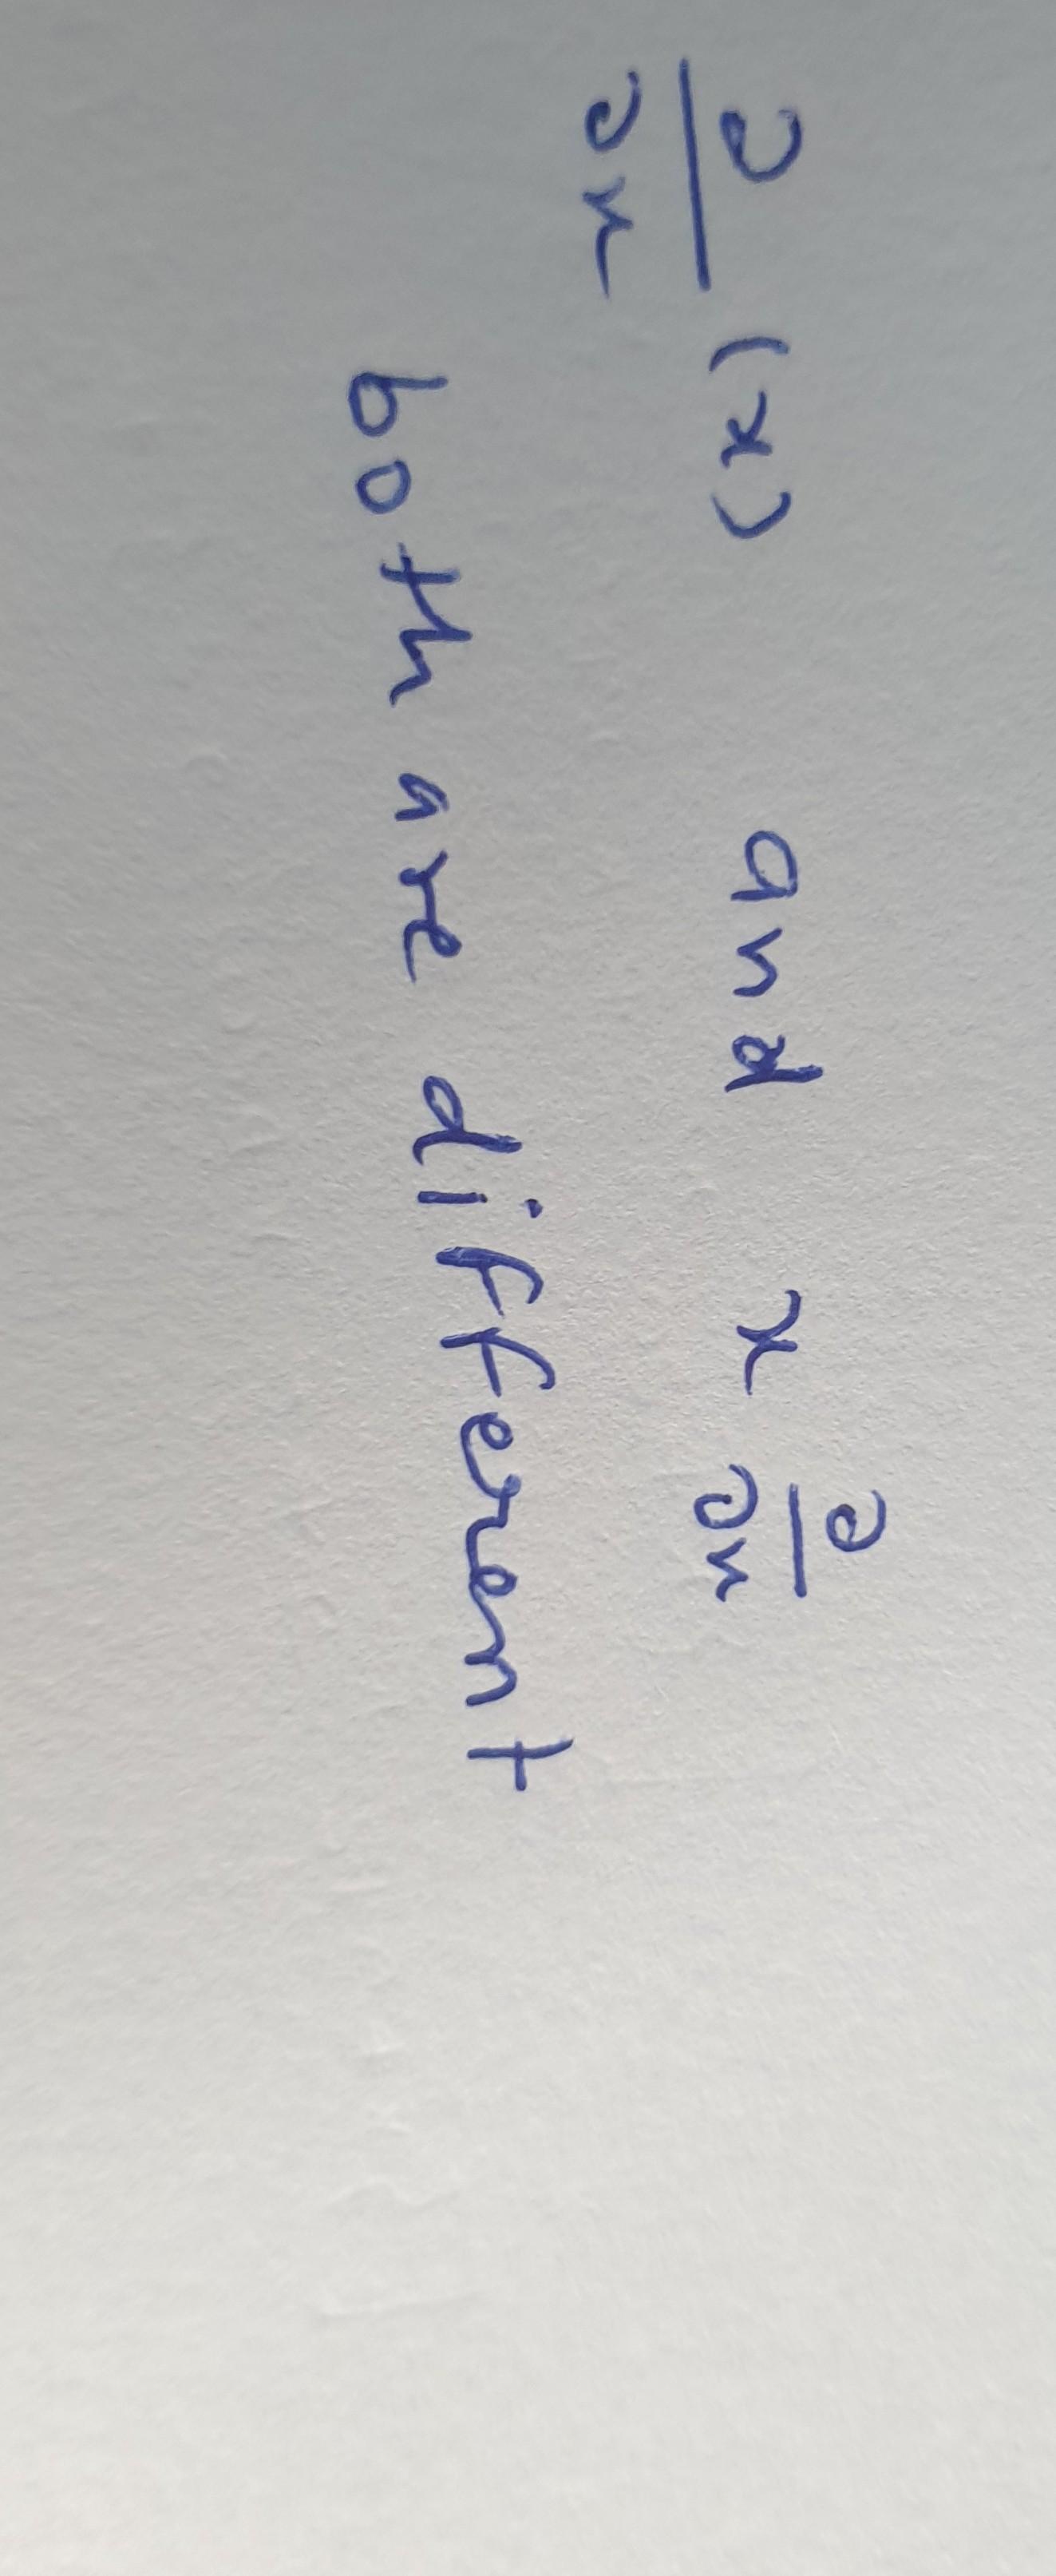 ∂/∂x (x) and x ∂/∂x
both are different